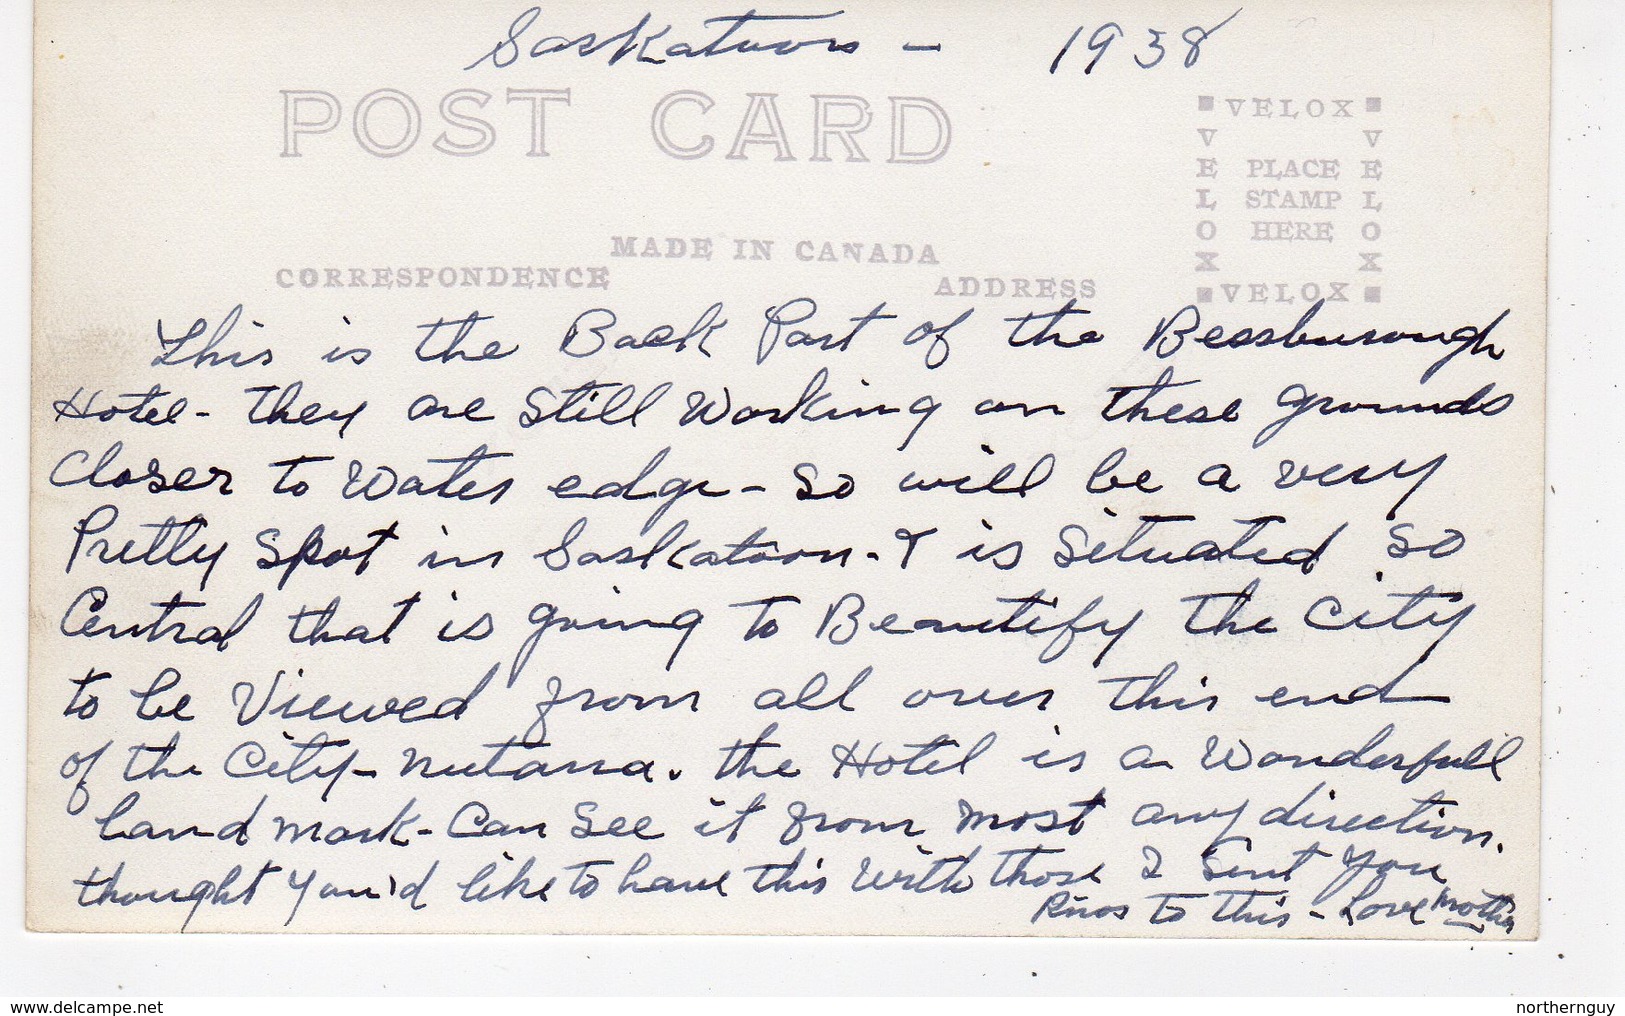 Saskatoon - 1938
POST CARD
VELOX
VELOX
VELOX
PLACE
STAMP
HERE
VELOX
MADE IN CANADA
CORRESPONDENCE
ADDRESS
This is the Back Part of the Bessburough
Hotel - They are Still Working on these grounds
Closer to Water edge - So will be a very
Pretty Spot in Saskatoon. & is Situated So
Central that is going to Beautify The City
to be Viewed from all over this end
of the City - Nutana. the Hotel is a Wonderfull
land mark - Can See it from most any direction.
thought You'd like to have this With those I Sent You
Prios to this - Love Mother
© delcampe.net
northernguy